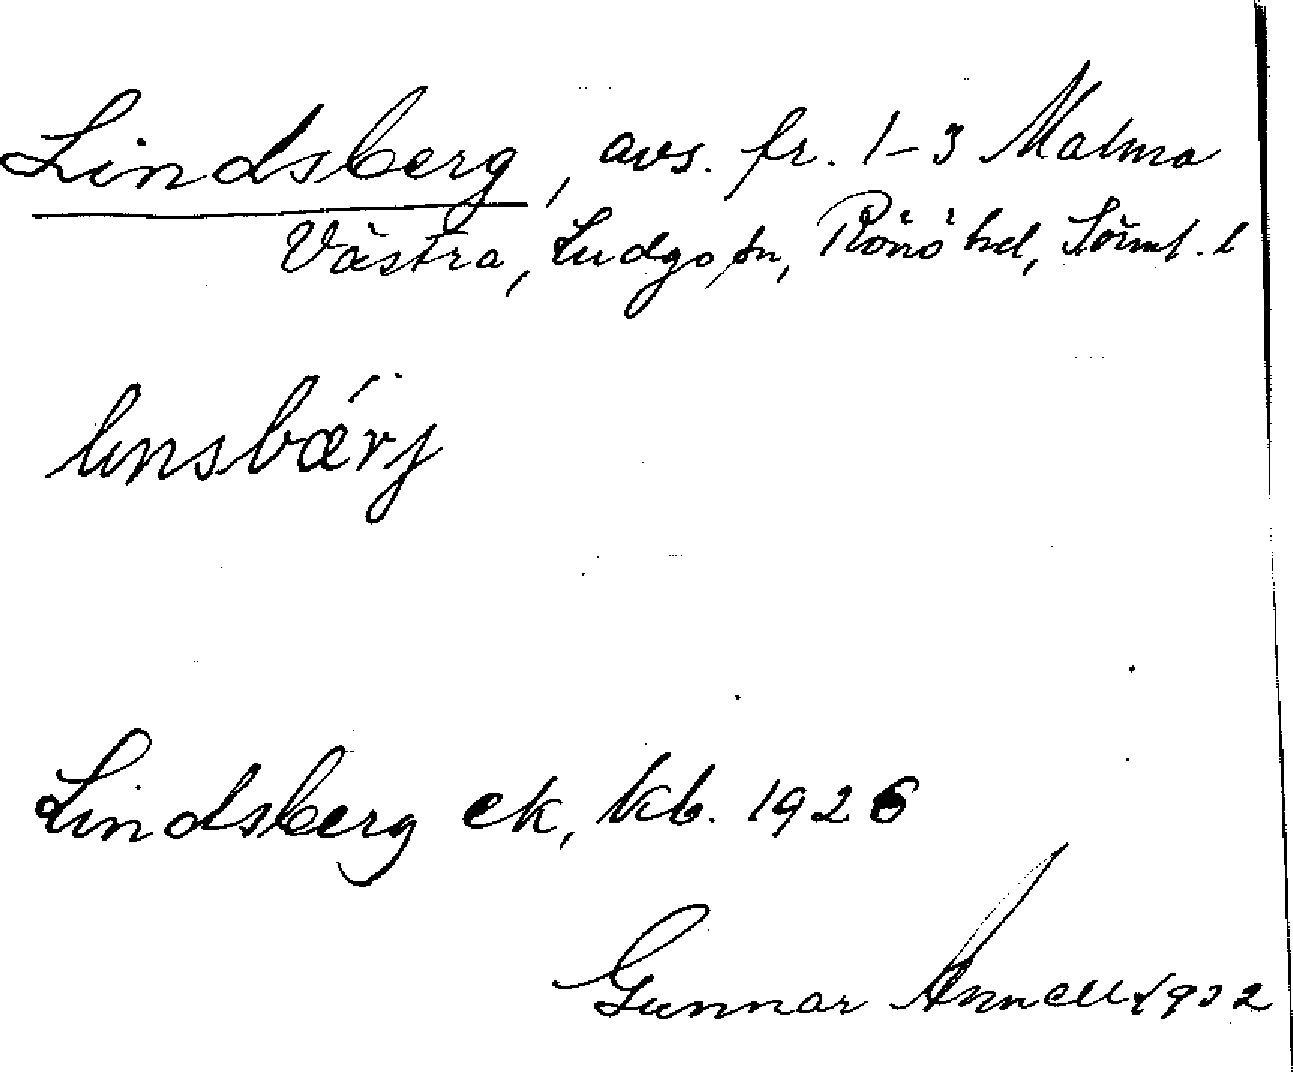 Lindsberg, avs. fr. 1-3 Malma
Västra, Ludgo sn, Rönö hd, Söml. l
linsbærj
Lindsberg ek, kb. 1926
Gunnar Annell 1932